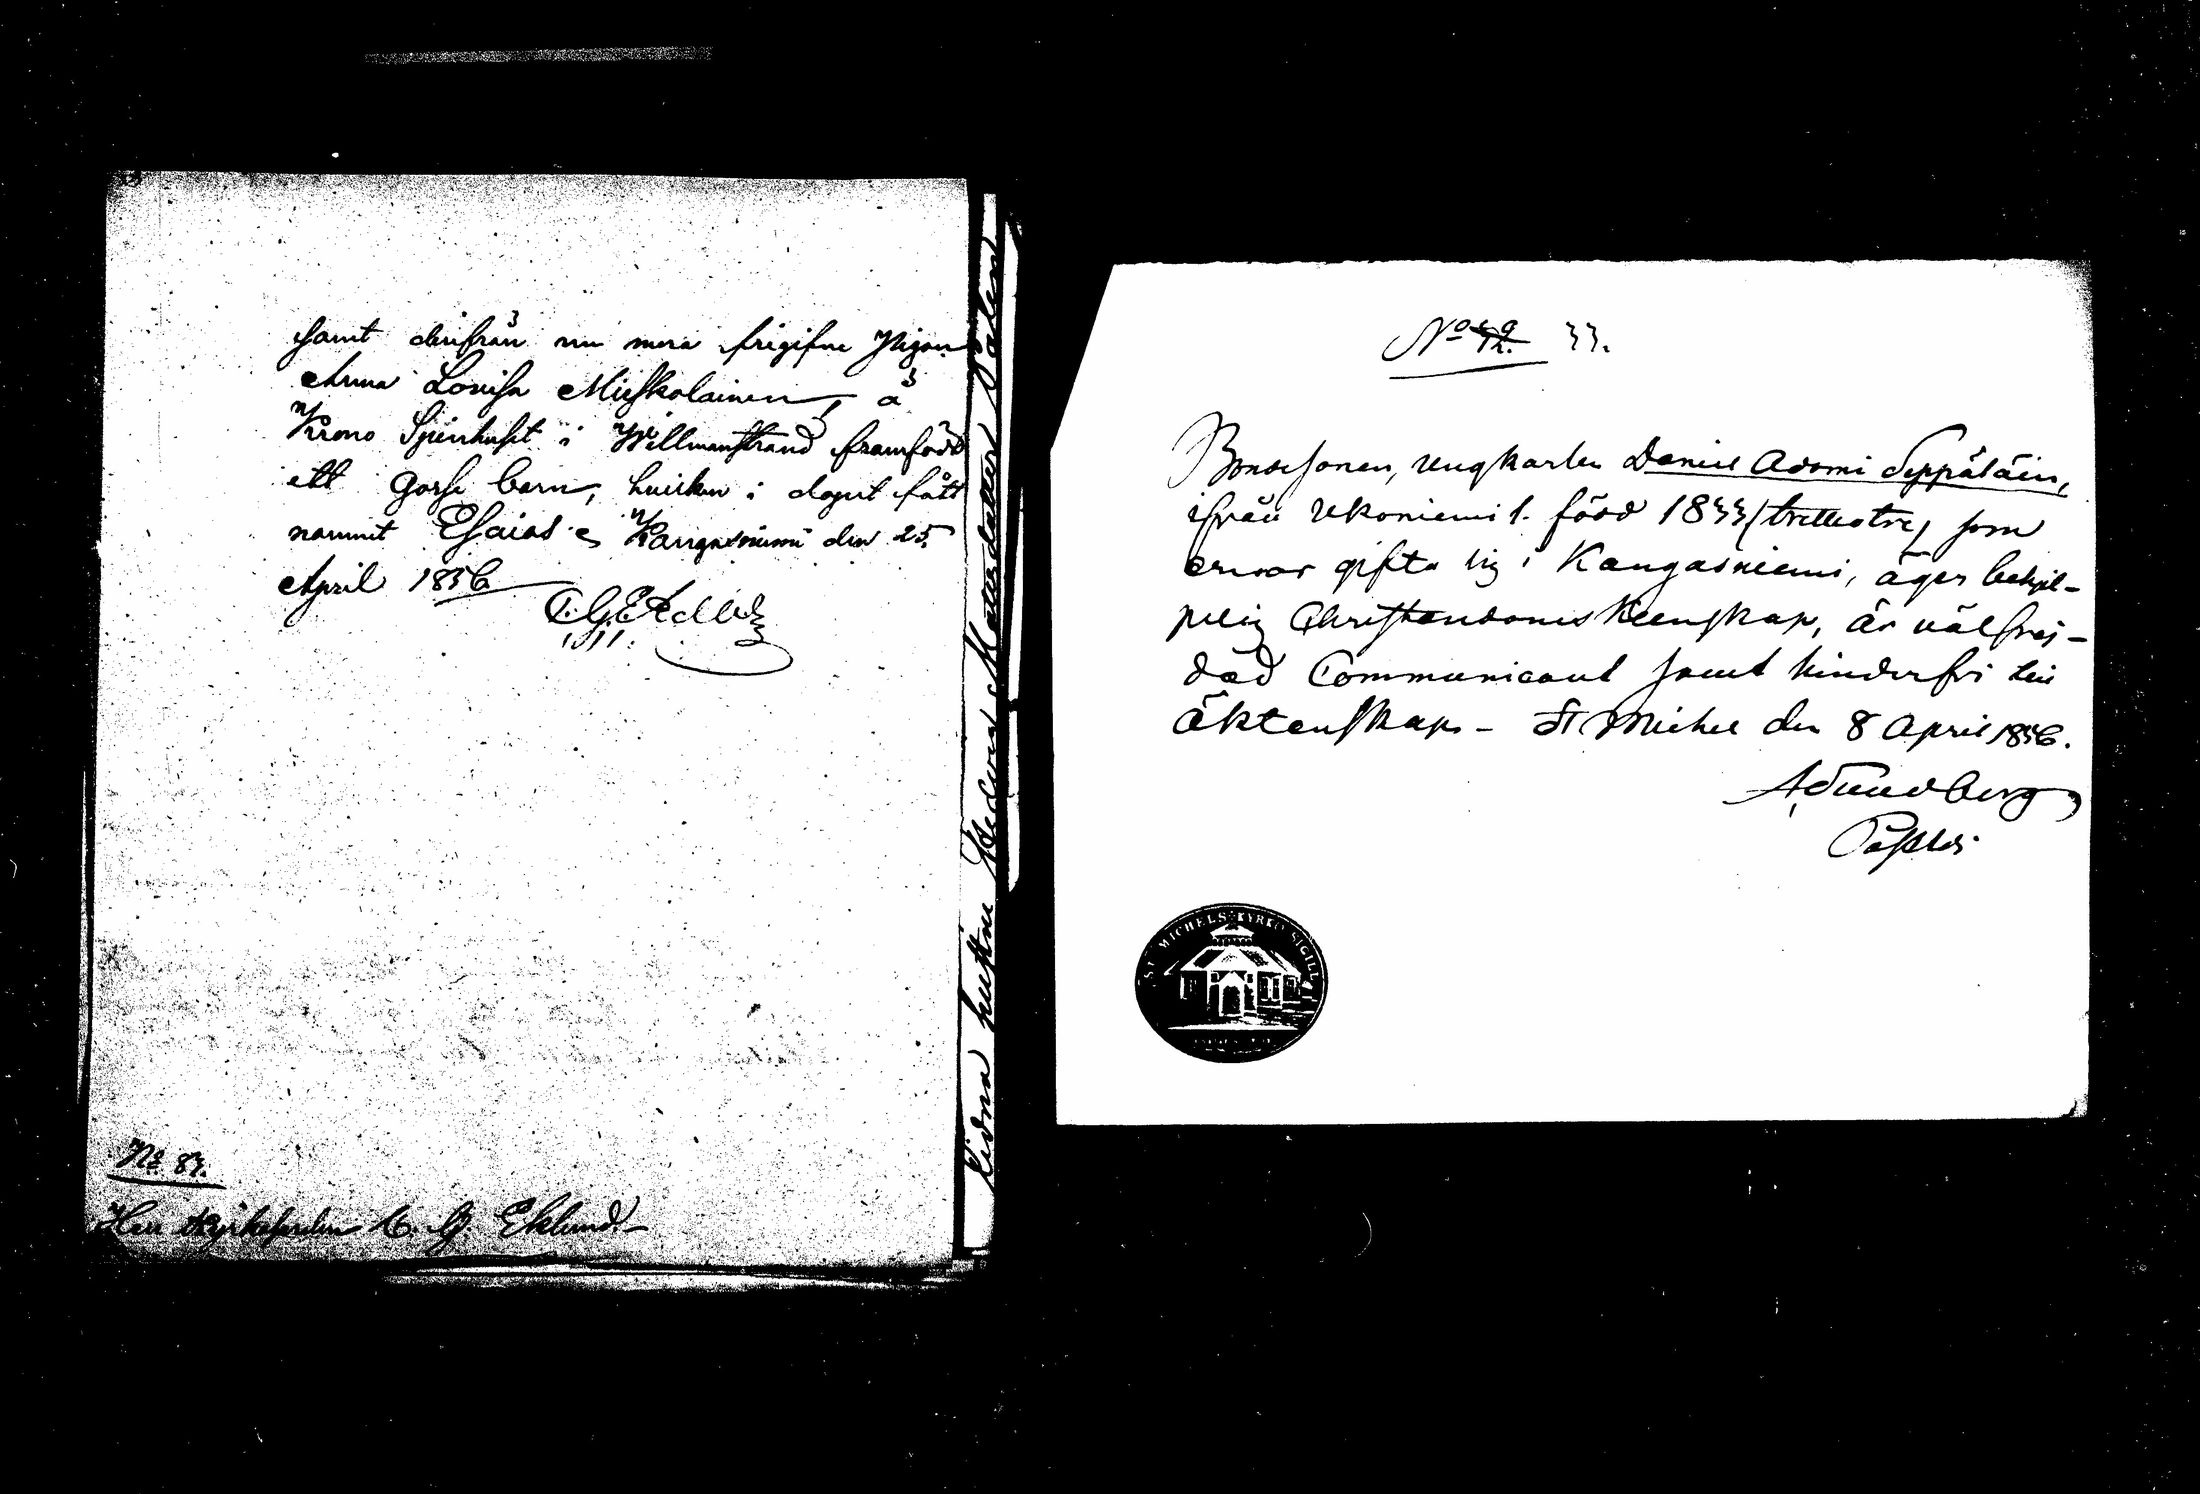 samt derifrån nu mera frigifne Pigan
Anna Lovisa Mieskolainen, å
Krono Spinhuset i Willmanstrand framfödt
ett Gosse barn, hvilken i dopet fått
namnet Esaias. Kangasniemi den 25.
April 1856
No 83.
Herr Kyrkoherden C. G. Eklund.
No 33.
Bondesonen, ungkarlen Daniel Adami Seppäläin,
ifrån Ukoniemi 1. född 1833 (trettiotre) som
ernar gifta sig i Kangasniemi, äger behjel-
pelig Christendoms Kunskap, är välfrej-
dad Communicant samt hinderfri till
Äktenskap - St Michel den 8 April 1856.
ST MICHELS KYRKO SIGILL